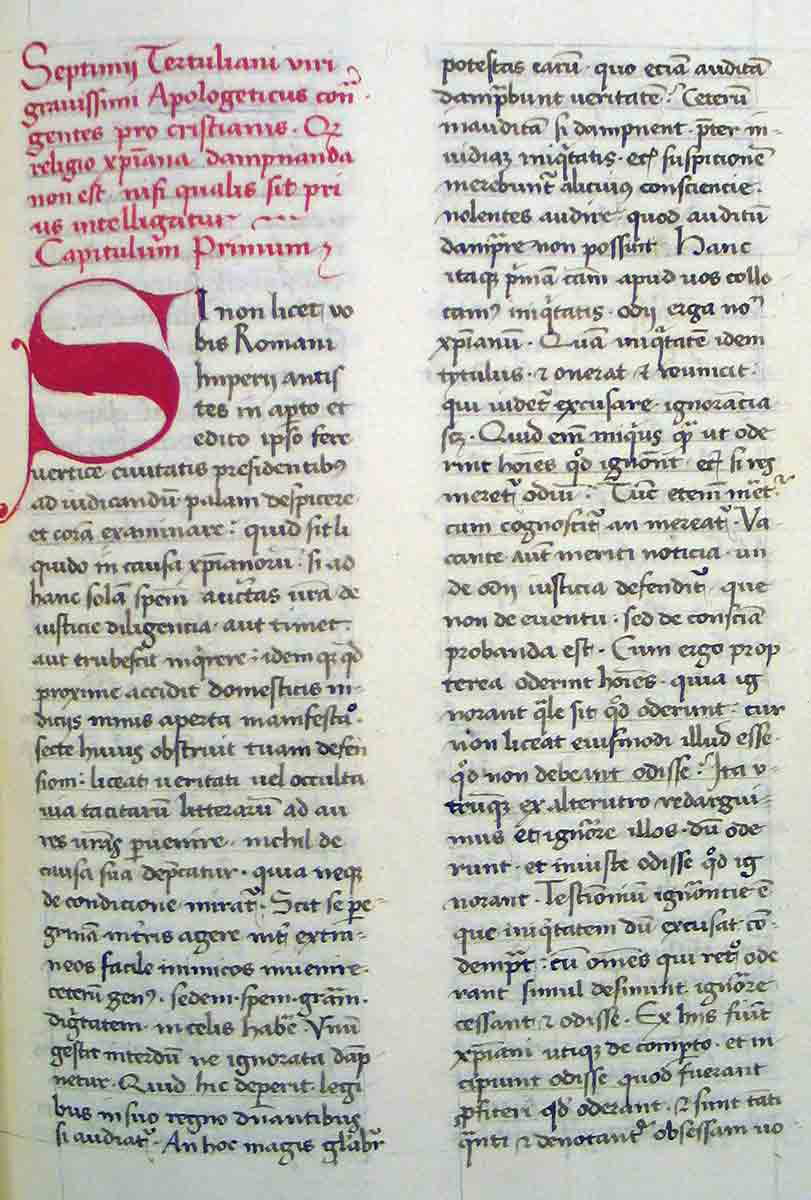 Septimij Tertuliani viri
grauissimi Apologeticus con̄
gentes pro cristianis. Qꝛ
religio xp̄iana dampnanda
non est nisi qualis sit pri
us intelligatur
Capitulum Primum
SI non licet vo
bis Romani
Imperij antis
tes in apto et
edito ipso fere
uertice ciuitatis presidentibꝰ
ad iudicandū palam despicere
et corā examinare: quid sit li
quido in causa xp̄ianorū: si ad
hanc solā spem auctās urā de
iusticie diligencia aut timet.
aut erubescit inqͥrere: idem qꝫ qd̄
proxime accidit domesticis in-
dicijs nimis aperta manifesta.
secte huius obstruit tuam defen
siom: liceat ueritati uel occulta
uia tacitarū litterarū ad au
res urās ꝑuenire. nichil de
causa sua dep̄catur. quia neqꝫ
de condicione mirat᷒. Scit se ꝑe-
grinā in tris agere int̄ extra-
neos facile inimicos inuenire.
ceterū genꝰ. sedem. spem. gr̄am.
dignitatem. in celis habē. Vnū
gestit interdū ne ignorata dāp
netur. Quid hic deperit legi
bus in suo regno dn̄antibus
si audiat᷒. An hoc magis glabr̄
potestas earū. quo eciā auditā
dāmp̄bunt ueritatē. Ceterū
inauditā si dampnent. p̄ter in-
uidiaꝫ iniqͥtatis. ecī suspicionē
merebunt᷒ alicuiꝰ consciencie.
nolentes audire. quod auditū
dāmp̄re non possunt. Hanc
itaqꝫ p̄mā cām apud uos collo
camꝰ iniqͥtatis. odij erga noīn
xp̄ianū. Quā iniqͥtatē idem
tytulus. ⁊ onerat ⁊ reuincit.
qui uidet᷒ excusare. ignorācia
scꝫ. Quid em̄ iniqͥus qm̄ ut ode
rint hoīes qd̄ ignorāt. ecī si res
meret᷒ odiū. Tūc etem̄ meret᷒.
cum cognoscit᷒ an mereat᷒. Va
cante aut̄ meriti noticia. un
de odij iusticia defendit᷒. que
non de euentu. sed de consciā
probanda est. Cum ergo prop
terea oderint hoīes. quia ig
norant qͣle sit qd̄ oderunt. cur
non liceat eiusmodi illud esse.
qd̄ non debeant odisse. Ita v-
trumqꝫ ex alterutro redargui-
mus et ignorāre illos. dū ode
runt. et iniuste odisse qd̄ ig
norant. Testimoniū ignorātie ē
que iniqͥtatem dū excusat. cō-
demp̄t. cū omēs qui ret᷒o ode
rant simul desinunt ignorāre
cessant ⁊ odisse. Ex hijs fiūt
xp̄iani utiqꝫ de comꝑto. et in
cipiunt odisse quod fuerant
ꝓfiteri qd̄ oderant. ⁊ sunt tāti
qͣnti ⁊ denotant᷒ obsessam uo